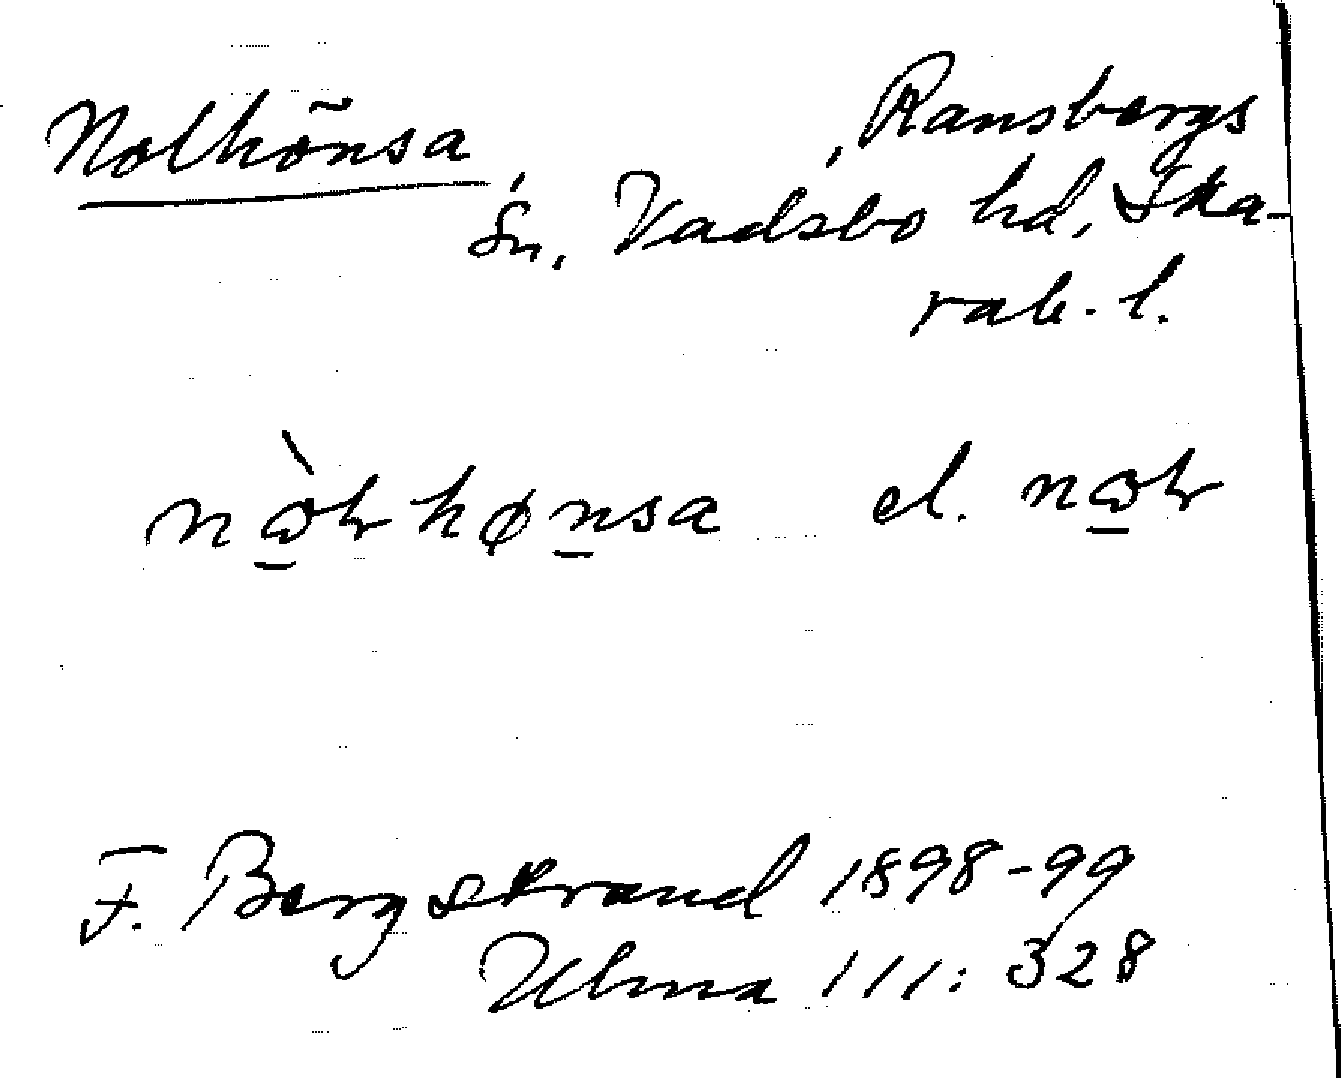 Nolhönsa, Ransbergs
Sn, Vadsbo hd, Ska-
rab. l.
hønsa el.
F. Bergstrand 1898-99
Ulma 111: 328